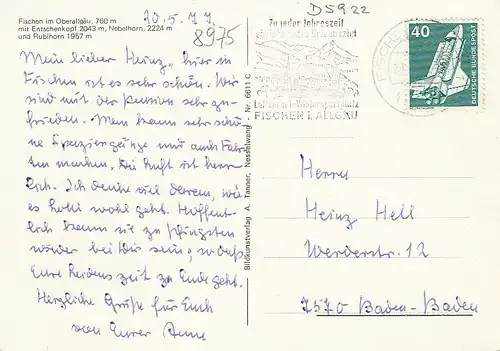 Fischen im Oberallgäu, 760 m
mit Entschenkopf 2043 m, Nebelhorn, 2224 m
und Rubihorn 1957 m
20.5.77
8975
D5922
Mein lieber Heinz, hier in
Fischen ist es sehr schön. Wir
sind mit der Pension sehr zu-
frieden. Man kann sehr schö-
ne Spaziergänge und auch Fahr-
ten machen. Die Luft ist herr-
lich. Ich denke viel daran, wie
es Lotti wohl geht. Hoffent-
lich kann sie zu Pfingsten
wieder bei Dir sein, so daß
Eure Leidenszeit zu Ende geht.
Herzliche Grüße für Euch
von Eurer Anne
Bildkunstverlag A. Tanner, Nesselwang - Nr. 6611 C
Zu jeder Jahreszeit
FISCHEN i. ALLGÄU
40
DEUTSCHE BUNDESPOST
Herrn
Heinz Hell
Werderstr. 12
7570 Baden-Baden